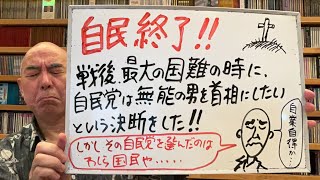 自民終了!!
戦後、最大の国難の時に、
自民党は無能の男を首相にしたい
という決断をした!!
しかしその自民党を選んだのは
わしら国民や・・・・・
自業自得か…